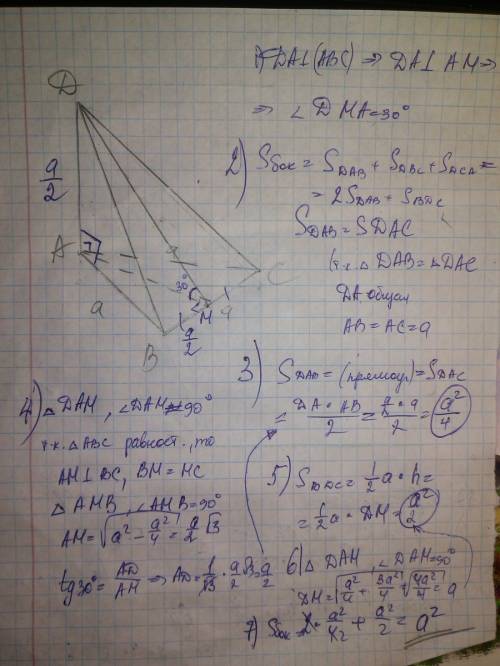 1) DA⊥(ABC) ⇒ DA⊥AM ⇒
⇒ ∠DMA=30°
2) Sбок = S_DAB + S_DBC + S_DCA =
= 2S_DAB + S_BDC
S_DAB = S_DAC
(т.к. △DAB = △DAC
DA общая
AB = AC = a
D
a/2
A
a
a
30°
C
M
a
B
a/2
3) S_DAB = (прямоуг) = S_DAC
= DA · AB / 2 = a/2 · a / 2 = a²/4
4) △DAM, ∠DAM=90°
т.к. △ABC равност., то
AM⊥BC, BM = MC
△AMB, ∠AMB=90°
AM = √(a² - a²/4) = a/2 √3
tg30° = AD/AM ⇒ AD = 1/√3 · a/2 √3 = a/2
5) S_BDC = 1/2 a · h =
= 1/2 a · DM = a²/2
6) △DAM, ∠DAM=90°
DM = √(a²/4 + 3a²/4) = √(4a²/4) = a
7) Sбок = 2 · a²/4 + a²/2 = a²